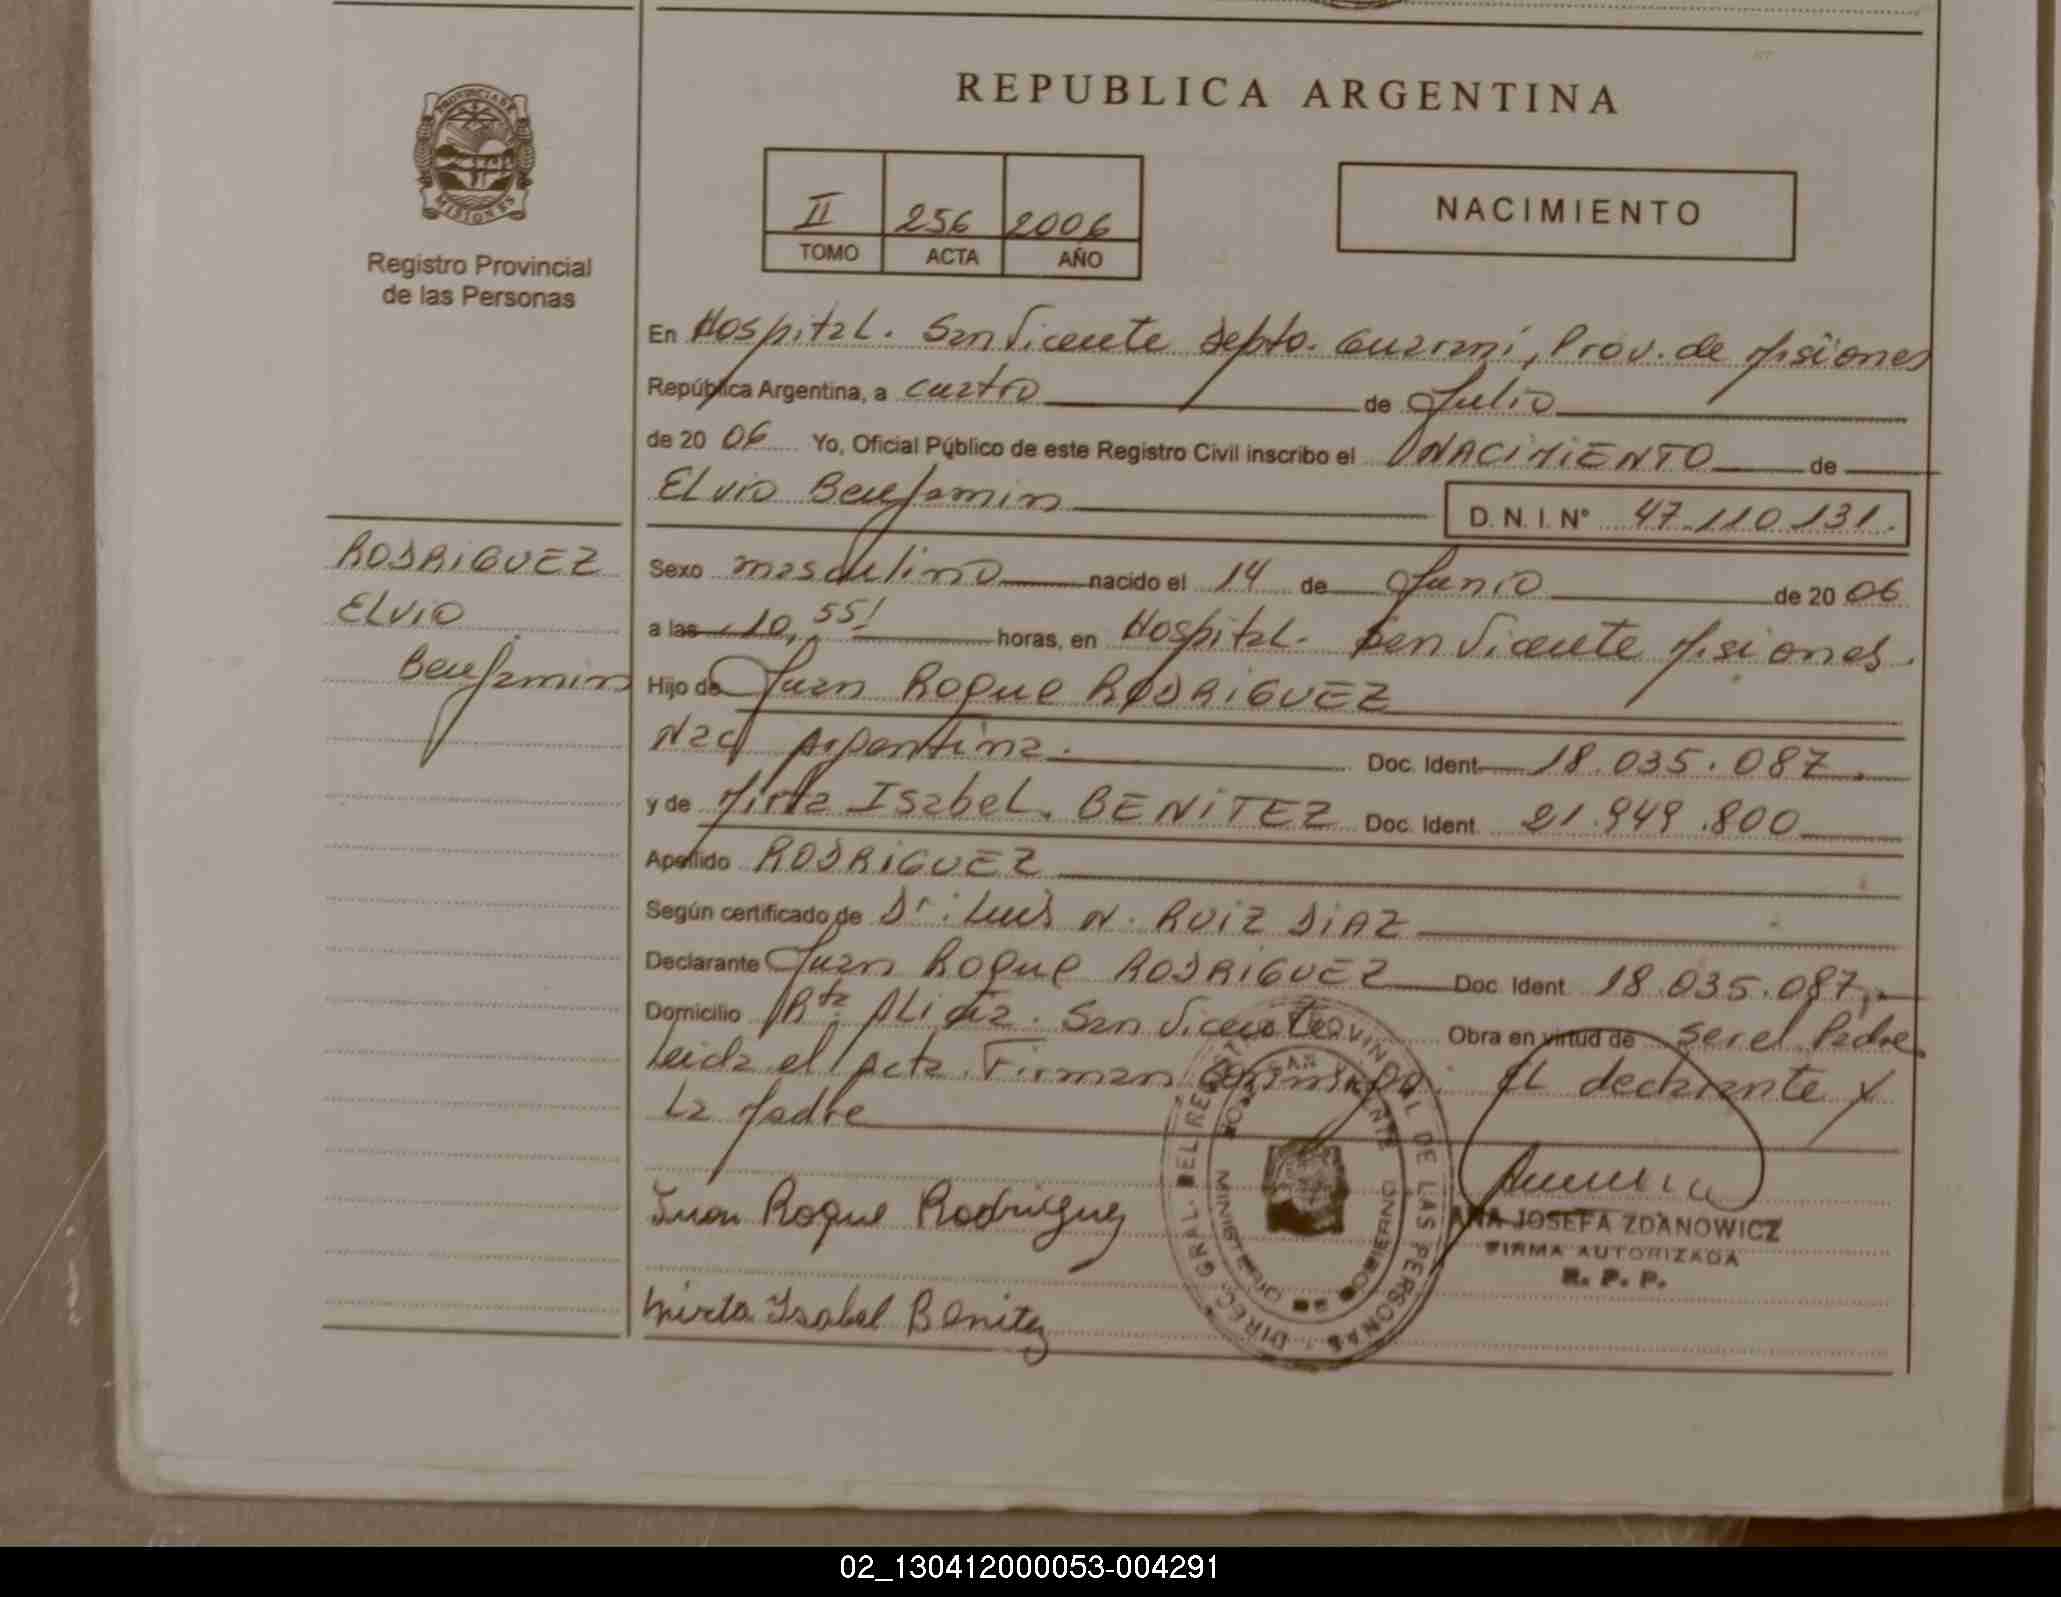 REPUBLICA ARGENTINA
PROVINCIA DE
MISIONES
Registro Provincial
de las Personas
II 256 2006
TOMO ACTA AÑO
NACIMIENTO
En Hospital. San Vicente Depto. Guaraní, Prov. de Misiones
República Argentina, a cuatro de Julio
de 20 06 Yo, Oficial Público de este Registro Civil inscribo el NACIMIENTO de
Elvio Benjamin D. N. I. N° 47.110.131.
RODRIGUEZ
Elvio
Benjamin
Sexo masculino nacido el 14 de Junio de 20 06
a las 10,55! horas, en Hospital. San Vicente Misiones.
Hijo de Juan Roque RODRIGUEZ
Nac Argentina. Doc. Ident. 18.035.087.
y de Mirta Isabel. BENITEZ Doc. Ident. 21.949.800
Apellido RODRIGUEZ
Según certificado de Dr: Luis N. RUIZ DIAZ
Declarante Juan Roque RODRIGUEZ Doc. Ident. 18.035.087.
Domicilio San Vicente Obra en virtud de ser el Padre.
Leida el Acta Firman conmigo: El declarante y
La Madre
Juan Roque Rodriguez
Mirta Isabel Benitez
DIREC. GRAL. DEL REGISTRO PROVINCIAL DE LAS PERSONAS
MINISTERIO DE GOBIERNO
ANA JOSEFA ZDANOWICZ
FIRMA AUTORIZADA
R. P. P.
02_130412000053-004291